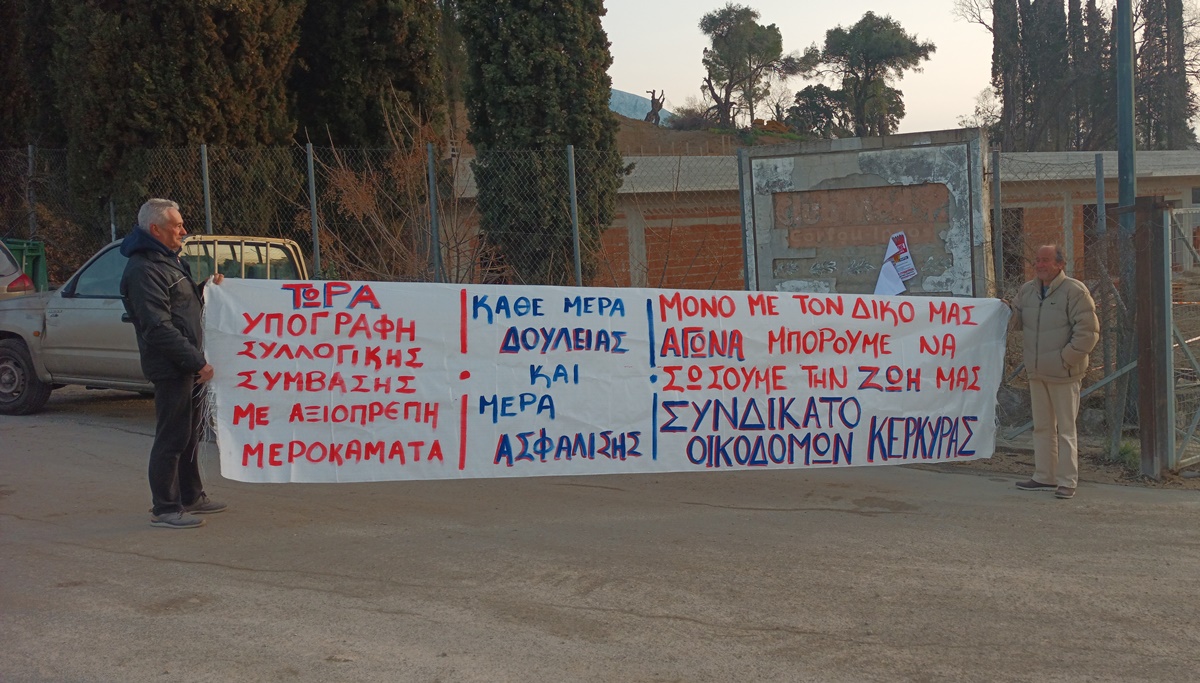 ΤΩΡΑ
ΥΠΟΓΡΑΦΗ
ΣΥΛΛΟΓΙΚΗΣ
ΣΥΜΒΑΣΗΣ
ΜΕ ΑΞΙΟΠΡΕΠΗ
ΜΕΡΟΚΑΜΑΤΑ
ΚΑΘΕ ΜΕΡΑ
ΔΟΥΛΕΙΑΣ
ΚΑΙ
ΜΕΡΑ
ΑΣΦΑΛΙΣΗΣ
ΜΟΝΟ ΜΕ ΤΟΝ ΔΙΚΟ ΜΑΣ
ΑΓΩΝΑ ΜΠΟΡΟΥΜΕ ΝΑ
ΣΩΣΟΥΜΕ ΤΗΝ ΖΩΗ ΜΑΣ
ΣΥΝΔΙΚΑΤΟ
ΟΙΚΟΔΟΜΩΝ ΚΕΡΚΥΡΑΣ